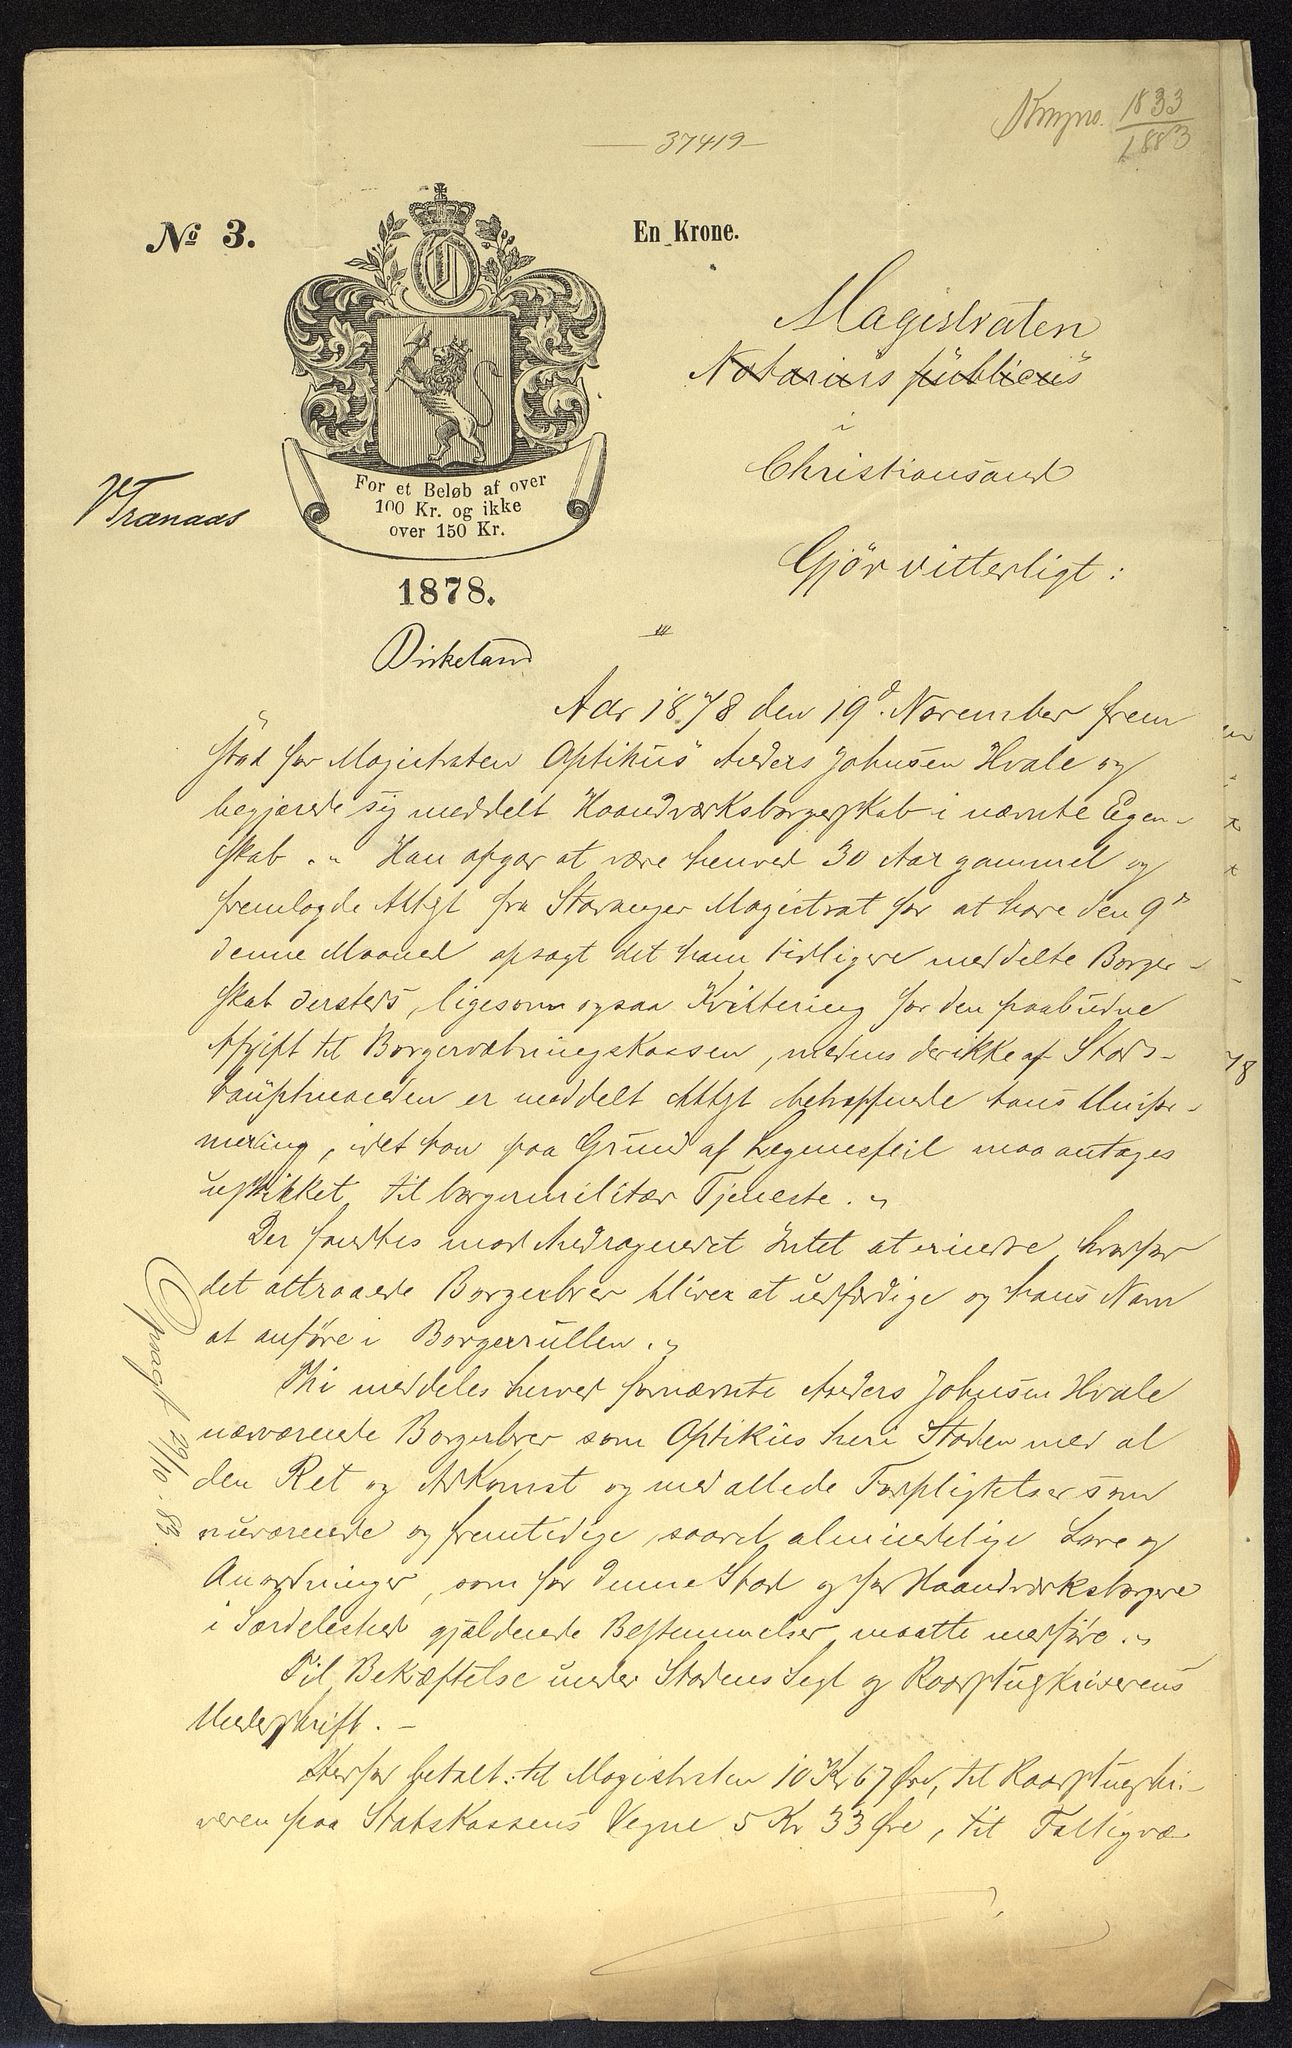 Kmgns. 1833
1883
37419
No 3.
En Krone.
Magistraten
Notarius publicus
i
Christianssand
Gjør vitterligt:
For et Beløb af over
100 Kr. og ikke
over 150 Kr.
VTranaas
1878.
Birkeland
Aar 1878 den 19d November frem
stod for Magistraten Optikus Anders Johnsen Hvale og
begjærede sig meddelt Haandværksborgerskab i nævnte Egen-
skab. „ Han opgav at være henved 30 Aar gammel og
fremlagde Attst fra Stavanger Magistrat for at have den 9de
denne Maaned opsagt det ham tidligere meddelte Borger-
skab dersteds, ligesom ogsaa Kvittering for den paabudne
Afgift til Borgervæbningskassen, medens der ikke af Stads-
hauptmanden er meddelt Attst betræffende hans Unifor-
mering, idet han paa Grund af Legemsfeil maa antages
uskikket til borgermilitær Tjeneste. „
Der fandtes mod Andragendet Intet at erindre, hvorfor
det attraaede Borgerbrev bliver at udfærdige og hans Navn
at anføre i Borgerrullen. „
Thi meddeles herved fornævnte Anders Johnsen Hvale
nærværende Borgerbrev som Optikus her i Staden med al
den Ret og Adkomst og med alle de Forpligtelser som
nuværende og fremtidige saavel almindelige Love og
Anordninger, som for denne Stad og for Haandværksborgere
i Særdeleshed gjældende Bestemmelser maatte medføre. „
Til Bekræftelse under Stadens Segl og Raadstugskriverens
Underskrift. –
Herfor betalt: til Magistraten 10 Kr 67 Øre, til Raadstugskri-
veren paa Statskassens Vegne 5 Kr 33 Øre, til Fattigvæ-
Opsagt 29/10. 83.
78